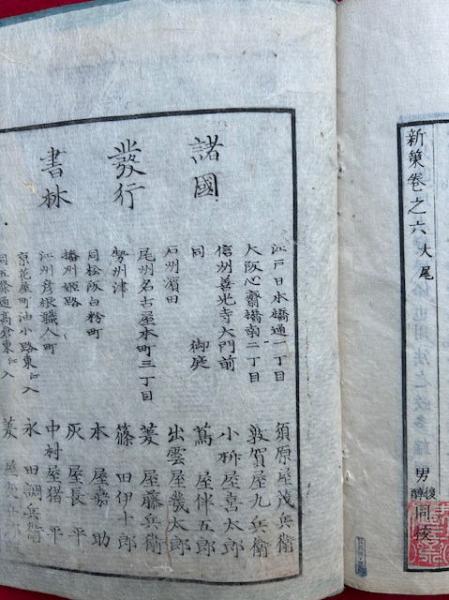 新策卷之六大尾
男俊醇同校
諸國
發行
書林
江戸日本橋通一丁目 須原屋茂兵衛
大阪心齋橋南二丁目 敦賀屋九兵衛
信州善光寺大門前 小枡屋喜太郎
同 御庭 蔦屋伴五郎
石州濱田 出雲屋幾太郎
尾州名古屋本町三丁目 菱屋藤兵衛
勢州津 篠田伊十郎
同松阪白粉町 本屋嘉助
播州姫路 灰屋長平
江州彦根職人町 中村屋猪平
京花屋町油小路東江入 永田調兵衛
同五條通高倉東江入 菱屋